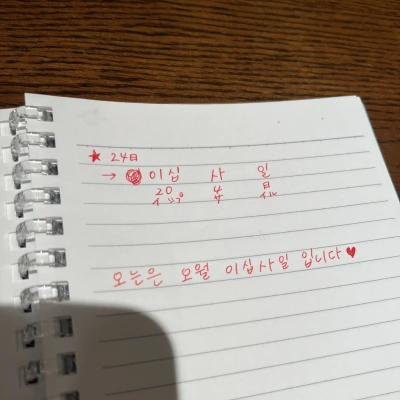 ★ 24日
→ 이십 사 일
20 4 日
오는은 오월 이십사일 입니다♥